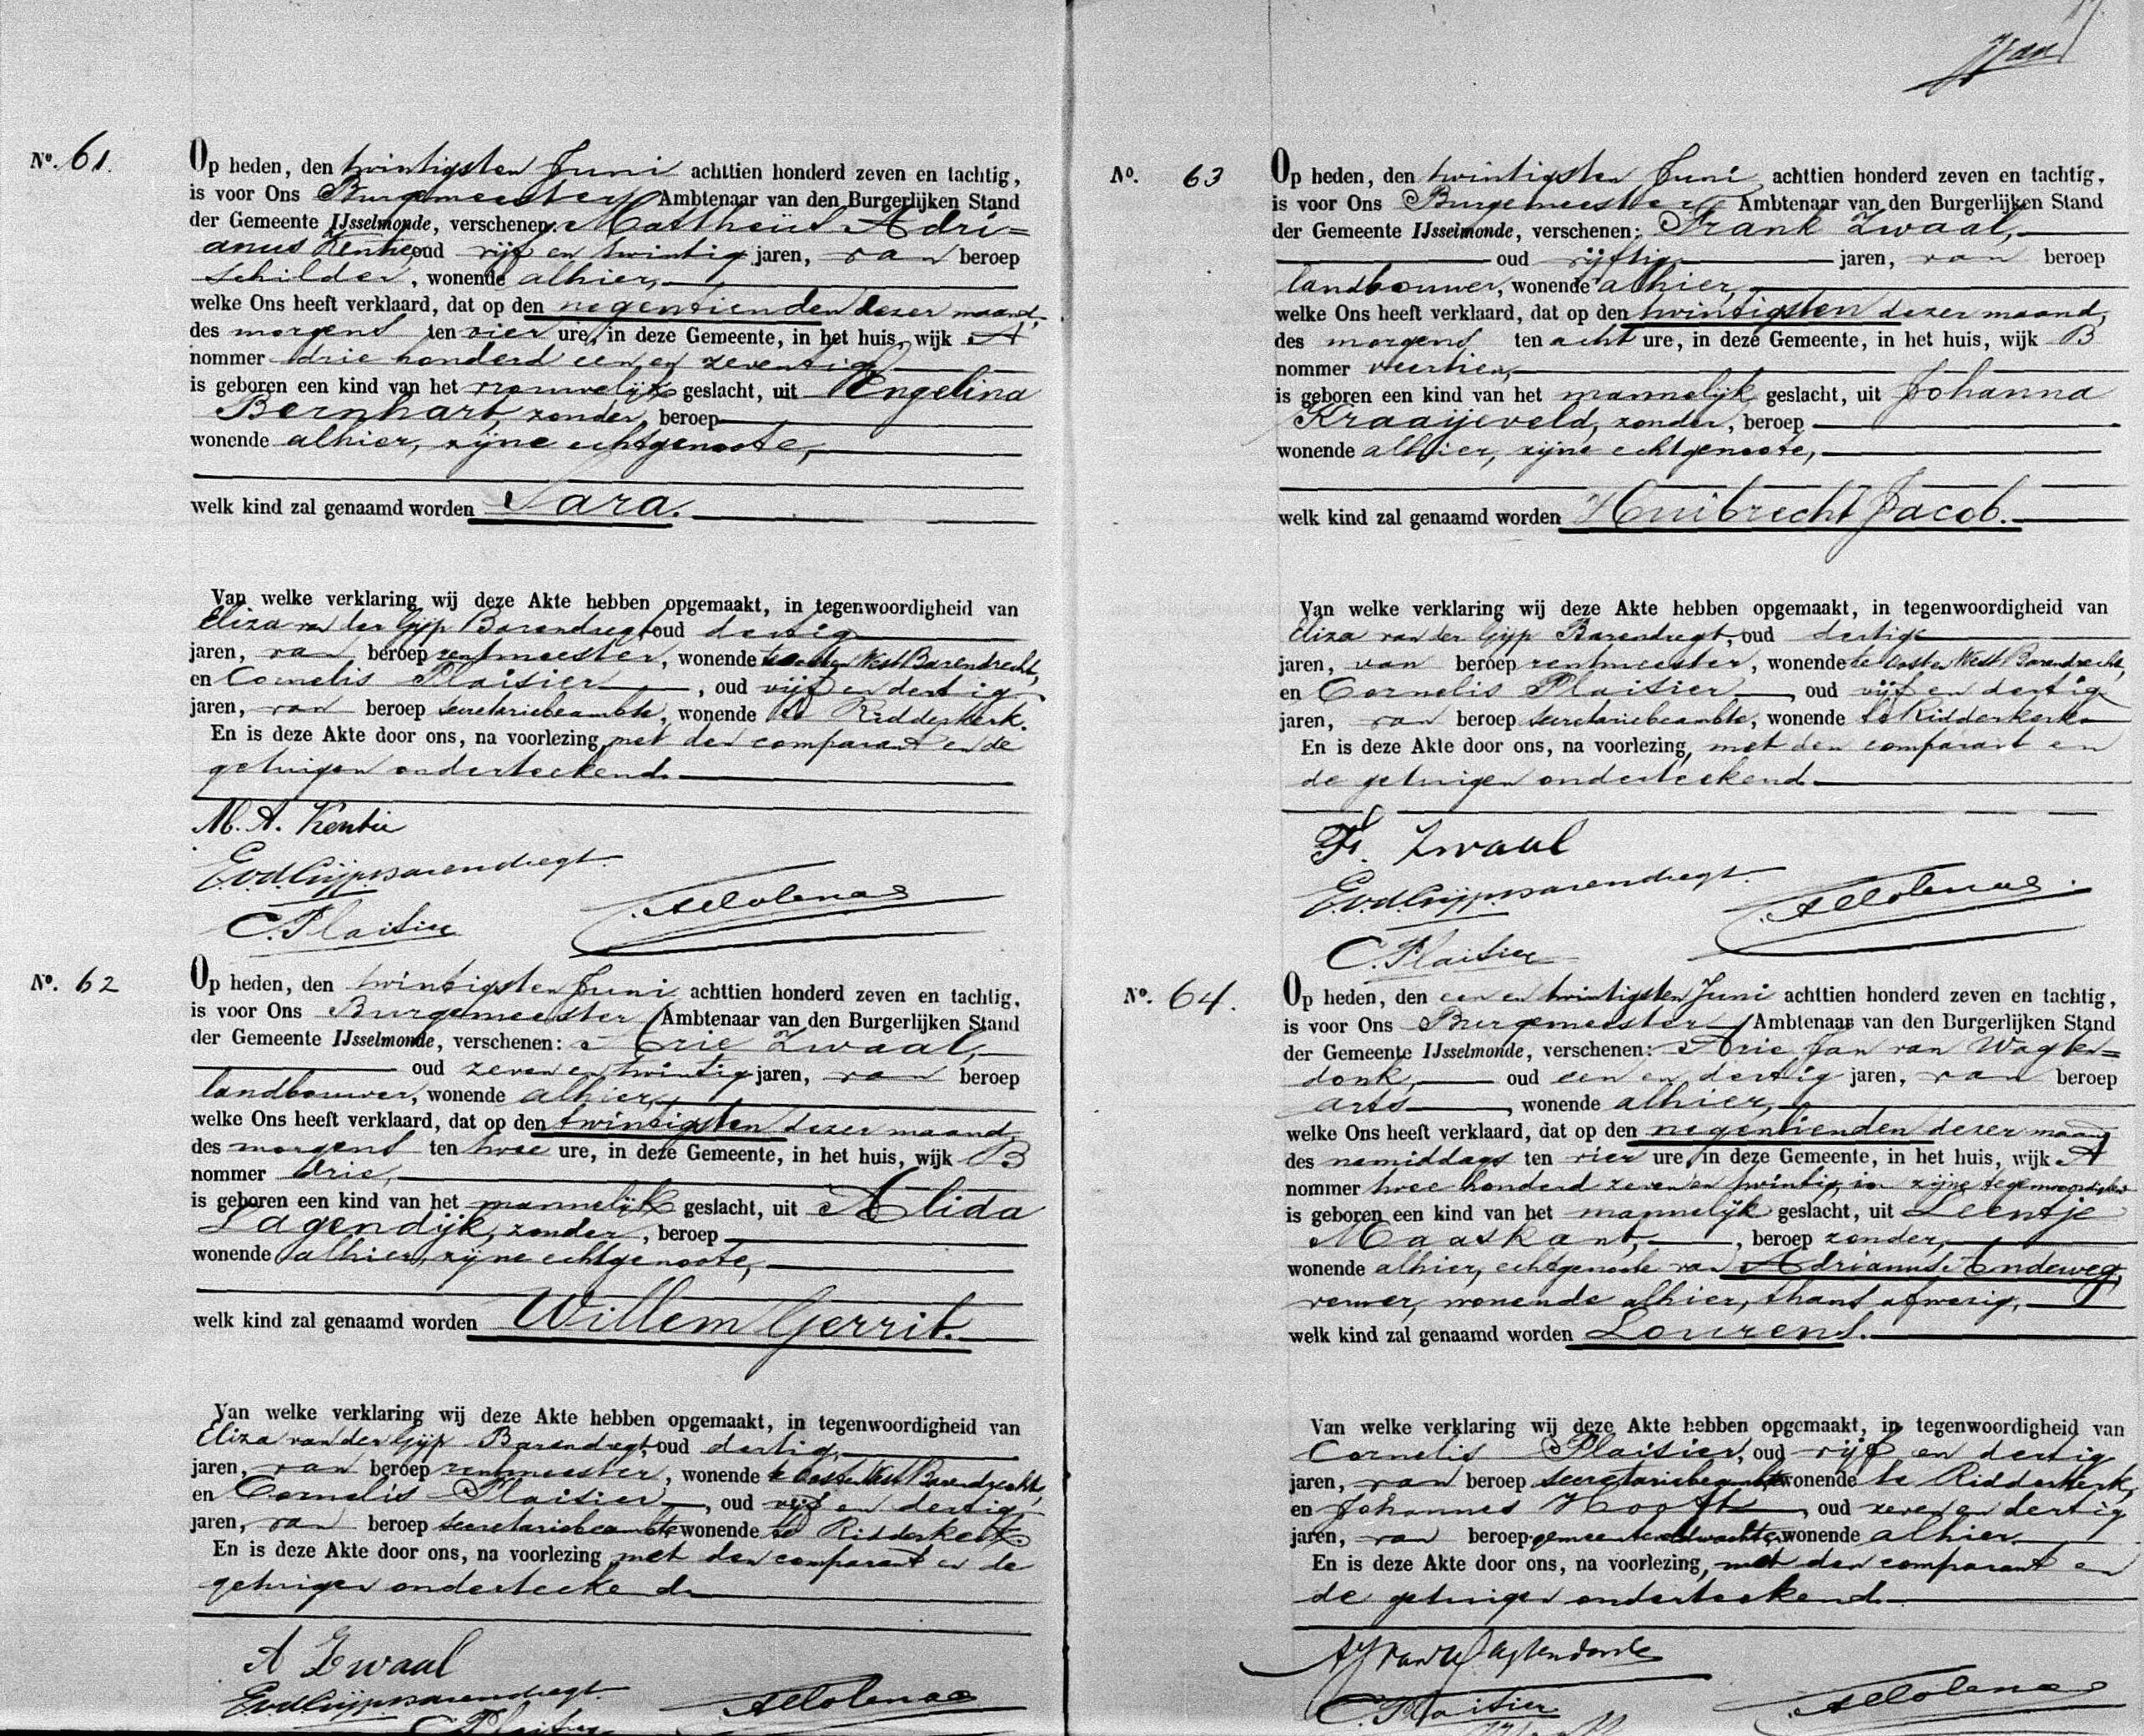 No. 61.
Op heden, den twintigsten Juni achttien honderd zeven en tachtig,
is voor Ons Burgemeester Ambtenaar van den Burgerlijken Stand
der Gemeente IJsselmonde, verschenen: Mattheüs Adri=
anus Kentie, oud vijf en twintig jaren, van beroep
schilder, wonende alhier,
welke Ons heeft verklaard, dat op den negentienden dezer maand,
des morgens ten vier ure, in deze Gemeente, in het huis, wijk A
nommer drie honderd een en zeventig
is geboren een kind van het vrouwelijk geslacht, uit Engelina
Bernhart, zonder, beroep
wonende alhier, zijne echtgenoote,
welk kind zal genaamd worden Sara.
Van welke verklaring wij deze Akte hebben opgemaakt, in tegenwoordigheid van
Eliza van der Gijp Barendregt, oud dertig
jaren, van beroep rentmeester, wonende te Oost en West Barendrecht,
en Cornelis Plaisier, oud vijf en dertig
jaren, van beroep secretariebeambte, wonende te Ridderkerk.
En is deze Akte door ons, na voorlezing, met den comparant en de
getuigen onderteekend.
M. A. Kentie
E.v.d.Gijp Barendregt.
C. Plaisier
No. 62
Op heden, den twintigsten Juni achttien honderd zeven en tachtig,
is voor Ons Burgemeester Ambtenaar van den Burgerlijken Stand
der Gemeente IJsselmonde, verschenen: Arie Zwaal,
oud zeven en twintig jaren, van beroep
landbouwer, wonende alhier,
welke Ons heeft verklaard, dat op den twintigsten dezer maand,
des morgens ten twee ure, in deze Gemeente, in het huis, wijk B
nommer drie,
is geboren een kind van het mannelijk geslacht, uit Alida
Lagendijk, zonder, beroep
wonende alhier, zijne echtgenoote,
welk kind zal genaamd worden Willem Gerrit.
Van welke verklaring wij deze Akte hebben opgemaakt, in tegenwoordigheid van
Eliza van der Gijp Barendregt, oud dertig,
jaren, van beroep rentmeester, wonende te Oost en West Barendrecht,
en Cornelis Plaisier, oud vijf en dertig
jaren, van beroep secretariebeambte wonende te Ridderkerk
En is deze Akte door ons, na voorlezing, met den comparant en de
getuigen onderteekend.
A Zwaal
E.v.d.Gijp Barendregt.
C. Plaisier
No. 63
Op heden, den twintigsten Juni achttien honderd zeven en tachtig,
is voor Ons Burgemeester Ambtenaar van den Burgerlijken Stand
der Gemeente IJsselmonde, verschenen: Frank Zwaal,
oud vijftig jaren, van beroep
landbouwer, wonende alhier,
welke Ons heeft verklaard, dat op den twintigsten dezer maand,
des morgens ten acht ure, in deze Gemeente, in het huis, wijk B
nommer veertien,
is geboren een kind van het mannelijk geslacht, uit Johanna
Kraaijeveld, zonder, beroep
wonende alhier, zijne echtgenoote,
welk kind zal genaamd worden Huibrecht Jacob.
Van welke verklaring wij deze Akte hebben opgemaakt, in tegenwoordigheid van
Eliza van der Gijp Barendregt, oud dertig
jaren, van beroep rentmeester, wonende te Oost en West Barendrecht,
en Cornelis Plaisier, oud vijf en dertig
jaren, van beroep secretariebeambte, wonende te Ridderkerk
En is deze Akte door ons, na voorlezing, met den comparant en
de getuigen onderteekend.
F. Zwaal
E.v.d.Gijp Barendregt.
C. Plaisier
No. 64.
Op heden, den een en twintigsten Juni achttien honderd zeven en tachtig,
is voor Ons Burgemeester Ambtenaar van den Burgerlijken Stand
der Gemeente IJsselmonde, verschenen: Arie Jan van Wagten=
donk, oud een en dertig jaren, van beroep
arts, wonende alhier,
welke Ons heeft verklaard, dat op den negentienden dezer maand
des namiddags ten vier ure, in deze Gemeente, in het huis, wijk A
nommer twee honderd zeven en twintig, in zijne tegenwoordigheid
is geboren een kind van het mannelijk geslacht, uit Leentje
Maaskant, beroep zonder,
wonende alhier, echtgenoote van Adrianus Endeweg,
verwer, wonende alhier, thans afwezig,
welk kind zal genaamd worden Lourens.
Van welke verklaring wij deze Akte hebben opgemaakt, in tegenwoordigheid van
Cornelis Plaisier, oud vijf en dertig
jaren, van beroep secretariebeambte, wonende te Ridderkerk,
en Johannes Hooft, oud zeven en dertig
jaren, van beroep gemeenteveldwachter, wonende alhier.
En is deze Akte door ons, na voorlezing, met den comparant en
de getuigen onderteekend.
AJ van Wagtendonk
C. Plaisier